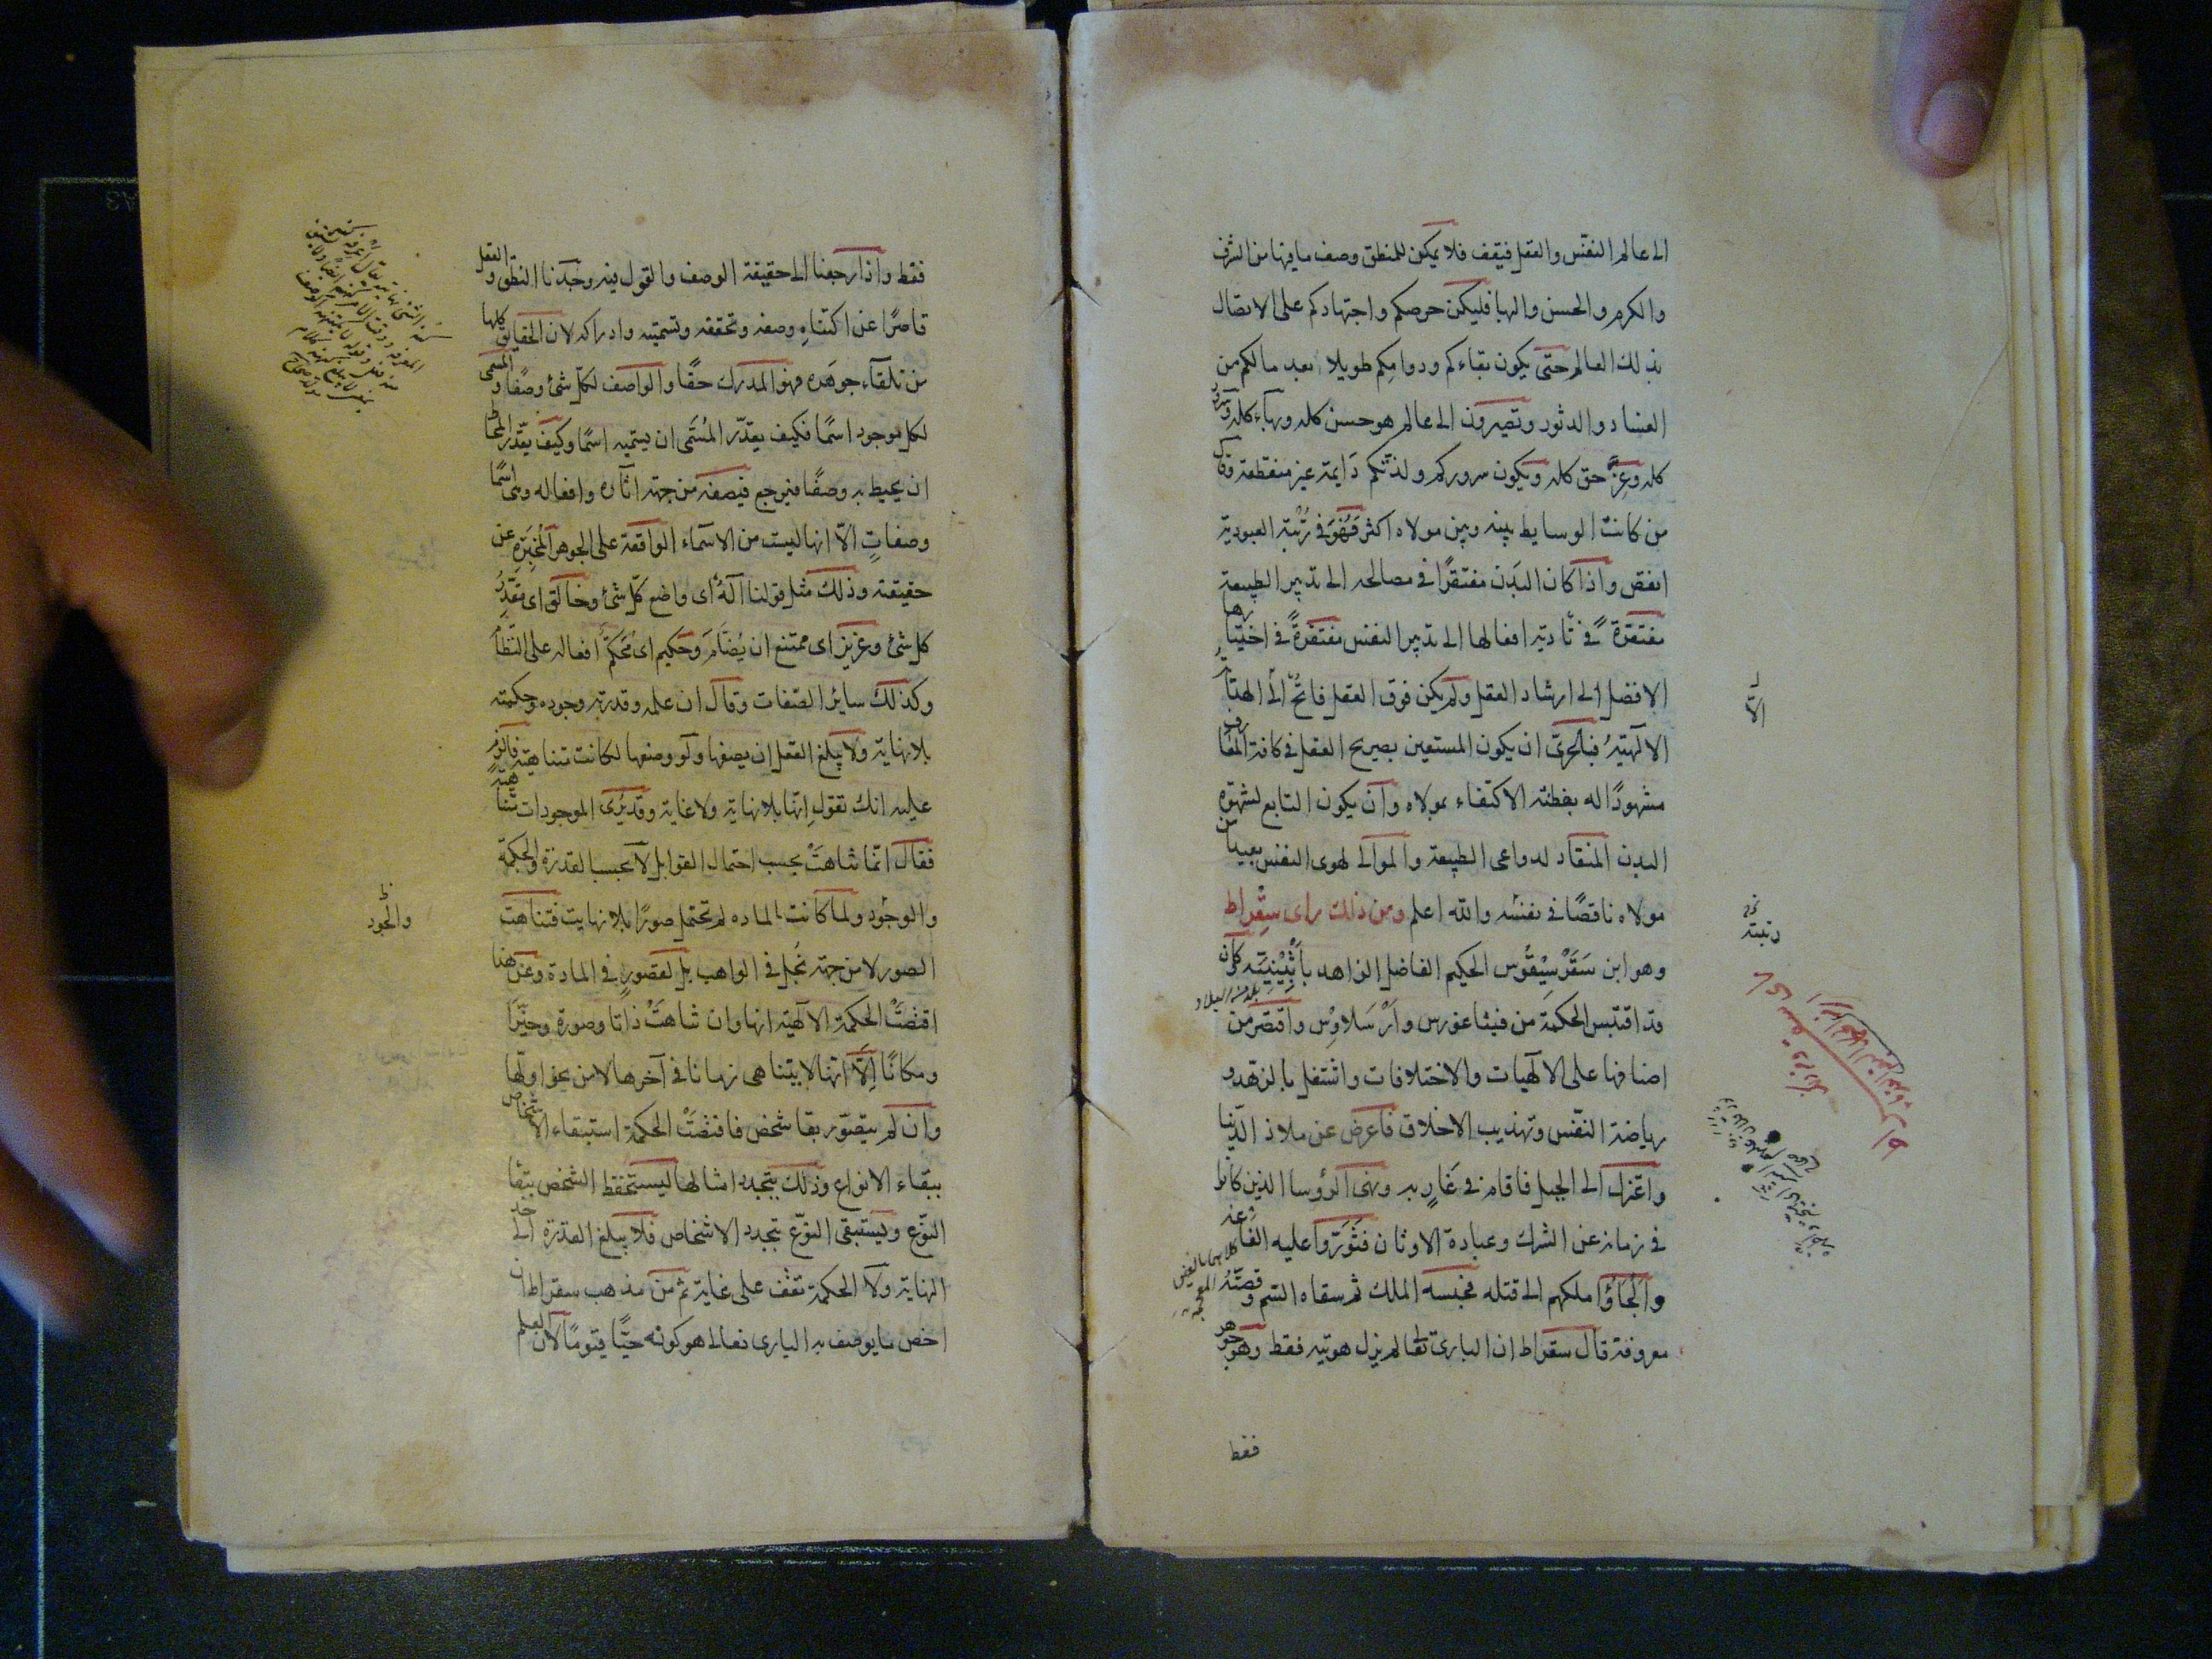 الى عالم النفس والعقل فيقف فلا يمكن للمنطق وصف ما فيها من الشرف
والكرم والحسن والبها فليكن حرصكم واجتهادكم على الاتصال
بذلك العالم حتى يكون بقاءكم ودوامكم طويلا بعد مالكم من
الفساد والدثور وتصيرون الى عالم هو حسن كله وبهآء كله وسرور
كله وعز حق كله ويكون سروركم ولذتكم دَايمة غير منقطعة وقال
من كانت الوسايط بينه وبين مولاه اكثر فهُوَ في رُتْبة العبودية
انقص واذا كان البَدن مفتقرًا في مصالحه الى تدبير الطبيعة
مفتقرة في تأدية افعالها الى تدبير النفس مفتقرةً في اختيارها
الافضل الى ارشاد العقل ولم يكن فوق العقل فاتحٌ الّا الهداية
الالهيّةُ فبالحرىّ ان يكون المستعين بصريح العقل في كافة المصارف
مشهودًا له بفطنة الاكتفاء بمولاه وان يكون التابع لشهوة
البدن المنقاد لدواعى الطبيعة والموالى لهوى النفس بعيدا من
مولاه ناقصًا في نفسه والله اعلم ومن ذلك راى سقراط
وهو ابن سَفَرْسيْقُوس الحكيم الفاضل الزاهد باَثِيْنِيَة كان
قد اقتبس الحكمة من فيثاغورس وارْسَلاوس واقتصر من
اصنافها على الالهيات والاختلاقات واشتغل بالزهد و
رياضة النفس وتهذيب الاخلاق فاعرض عن ملاذ الدّنيا
واعتزل الى الجبل فاقام في غَارٍ به ونهى الرؤسا الذين كانوا
في زمانه عن الشرك وعبادة الاوثان فثَوّروا عليه الغاغة
والْجَأؤُا ملكهم الى قتله فحبسه الملك ثم سقاه السّم وقصّتُه
معروفة قال سقراط ان البارى تعالى لم يزل هويّه فقط وهو جوهر
فقط
الّا
رتبته
فقط واذا رجعنا الى حقيقة الوصف والقول فيه وجَدنا النطق والعقل
قاصرًا عن اكتناهِ وصفه وتحققه وتسميته وادراكه لان الحقايق كلها
من تلقآء جوهَره فهو المدرك حقًا والواصف لكل شئ وصفًا والمسمى
لكل موجود اسمًا فكيف يقدّر المُسَمى ان يسميه اسمًا وكيف يقدّر المحاط
ان يحيط به وصفًا فيرجع فيصفه من جهة آثاره وافعاله وهى اسما
وصفاتٍ الّا انها ليست من الاسمآء الواقعة على الجوهر المُخبِرَة عن
حقيقته وذلك مثل قولنا آلهٌ اى واضع كل شئ وخالق اى مقَدّرُ
كل شئ وعزيز اى ممتنع ان يُضَامَ وحكيم اى مُحكمٌ افعاله على النّظام
وكذلك ساير الصّفات وقال ان علمه وقدرته وجوده وحكمته
بلا نهاية ولا يبلغ العقل ان يصفها ولو وصفها لكانت متناهيَة فالزم
عليه انك تقول انّها بلا نهاية ولا غاية وقد يُرى الموجودات متناهيةً
فقال انّما تناهَتْ بحسب احتمال القوابل لا بحسب القدرة والحكمة
والوجُود ولما كانت المادة لم تحتمل صورًا بلا نهايت فتناهت
الصور لا من جهة بُخل في الواهب بل لقصورٍ في المادة وعن هذا
اقتضَتْ الحكمة الالهيّه انها وان تناهَتْ ذاتا وصورة وحيّزًا
ومكانًا الّا انّها لا يتناهى زمانًا في آخرها لا من نحو اولها
وان لم يتصوّر بقا شخص فاقتضَتْ الحكمة استبقاء الاشخاص
ببقاء الانواع وذلك بتجدد امثالها ليستحفظ الشخص ببقا
النوّع ويستبقى النوّع بتجدد الاشخاص فلا يبلغ القدرة الى حد
النهاية ولا الحكمة تقف على غاية ثم من مذهب سقراط ان
اخص ما يوصف به البارى تعالى هو كونه حيًّا قيّومًا لان العلم
والجُود